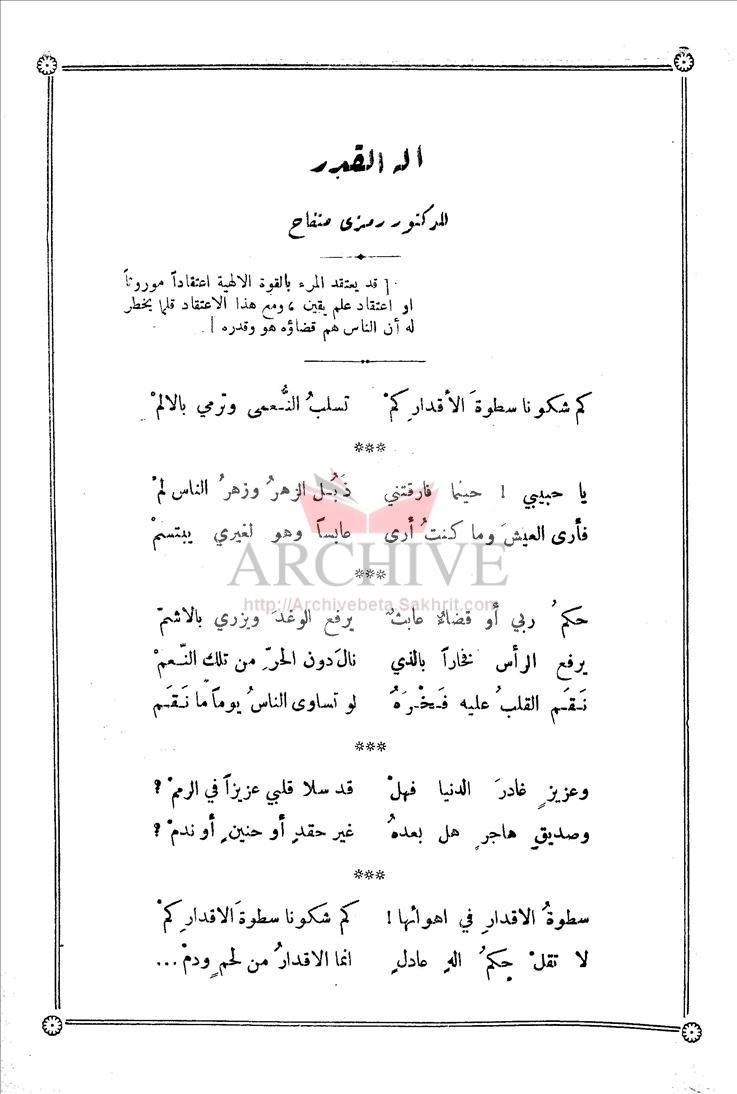 اله القدر
للدكتور رمزى مفتاح
[ قد يعتقد المرء بالقوة الالهية اعتقاداً موروثاً
او اعتقاد علم يقين ، ومع هذا الاعتقاد قلما يخطر
له أن الناس هم قضاؤه هو وقدره ]
كم شكونا سطوةَ الأقدارِ كمْ تسلبُ النُّعمى وترمي بالالمْ
***
يا حبيبي ! حينما فارقتني ذَبُل الزهرُ وزهرُ الناس لمْ
فأرى العيشَ وما كنتُ أرى عابساً وهو لغيري يبتسمْ
***
حكمُ ربي أو قضاءٌ عابثٌ يرفع الوغدَ ويزري بالاشمّ
يرفع الرأس فخاراً بالذي نالَ دون الحرِّ من تلك النّعمْ
نَقَم القلبُ عليه فَخْرَهُ لو تساوى الناسُ يوماً ما نَقَم
***
وعزيزٍ غادرَ الدنيا فهلْ قد سلا قلبي عزيزاً في الرممْ ؟
وصديقٍ هاجرٍ هل بعدهُ غير حقدٍ أو حنينٍ أو ندمْ ؟
***
سطوةُ الاقدارِ في اهوائها ! كم شكونا سطوةَ الاقدارِ كمْ
لا تقلْ حكمُ الهٍ عادلٍ انما الاقدارُ من لحمٍ ودمْ ...
ARCHIVE
http://Archivebeta.Sakhrit.com